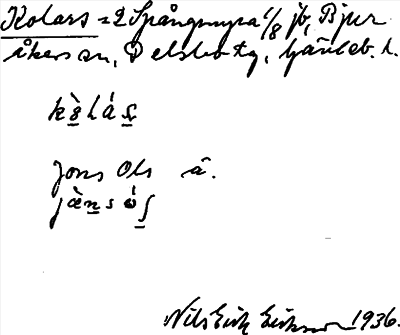 Kolars = 2 Spångmyra 1/8 jb, Bjur
åkers sn, Delsbo tg, Gävleb. l.
kɔ̀lás̱
Jons Ols å.
jɔ̀ṉsó̱ʃ
Nils Eric Eriksson 1936.